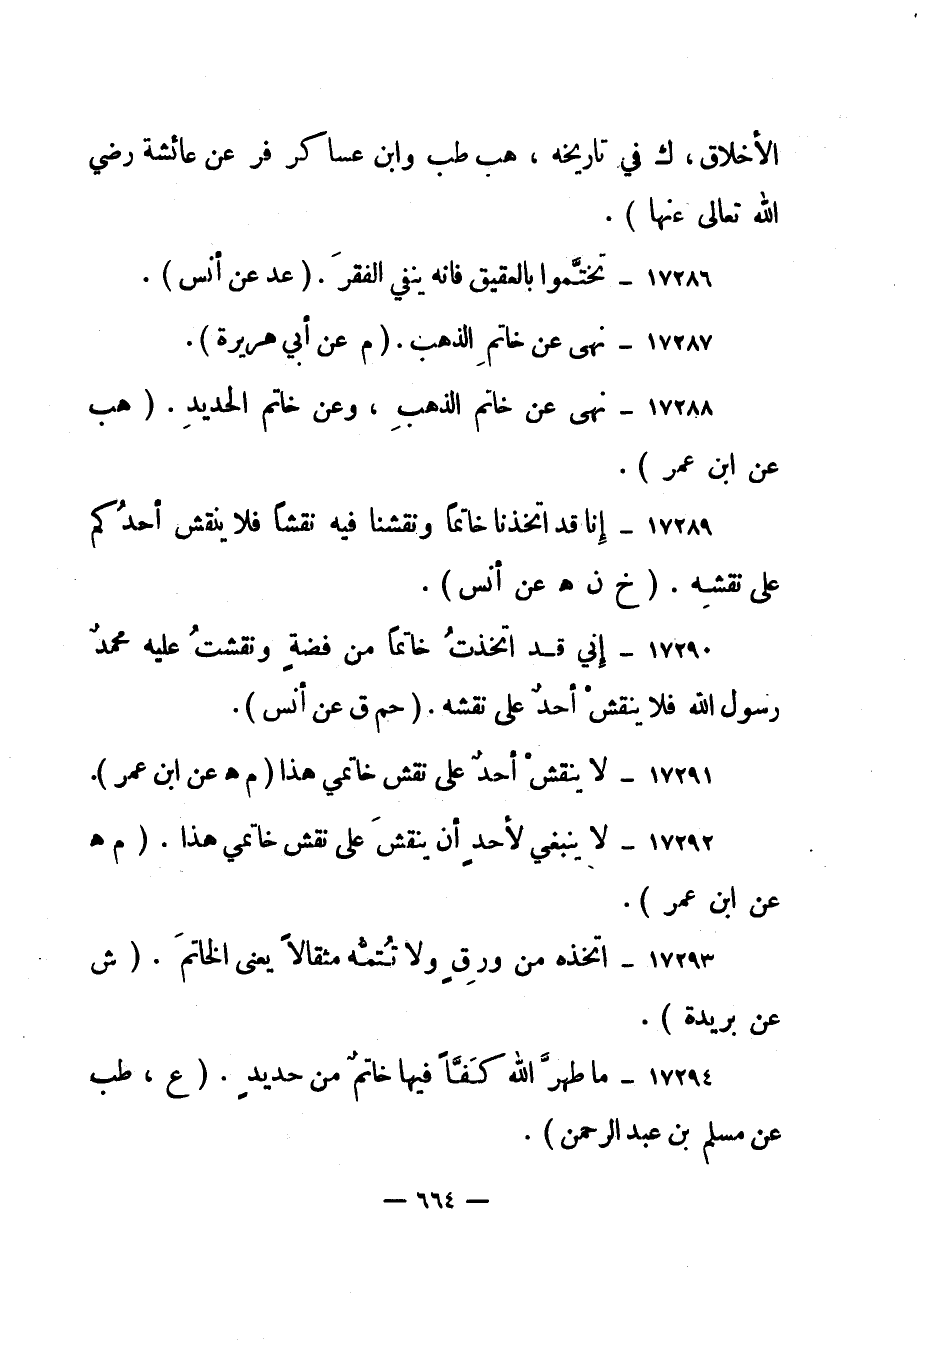 الأخلاق، ك في تاريخه ، هب طب وابن عساكر فر عن عائشة رضي
الله تعالى عنها ) .
١٧٢٨٦ ـ تختَّموا بالعقيق فانه ينفي الفقرَ . ( عد عن أنس ) .
١٧٢٨٧ ـ نهى عن خاتمِ الذهب . ( م عن أبي هريرة ) .
١٧٢٨٨ ـ نهى عن خاتم الذهبِ ، وعن خاتم الحديدِ . ( هب
عن ابن عمر ) .
١٧٢٨٩ ـ إنا قد اتخذنا خاتماً ونقشنا فيه نقشاً فلا ينقش أحدُكم
على نقشِه . ( خ ن ه عن أنس ) .
١٧٢٩٠ ـ إني قد اتخذتُ خاتماً من فضةٍ ونقشتُ عليه محمدٌ
رسول الله فلا ينقشْ أحدٌ على نقشه . ( حم ق عن أنس ) .
١٧٢٩١ ـ لا ينقشْ أحدٌ على نقش خاتمي هذا ( م ه عن ابن عمر ) .
١٧٢٩٢ ـ لا ينبغي لأحدٍ أن ينقشَ على نقش خاتمي هذا . ( م ه
عن ابن عمر ) .
١٧٢٩٣ ـ اتخذه من ورِقٍ ولا تُتمَّه مثقالاً يعنى الخاتمَ . ( ش
عن بريدة ) .
١٧٢٩٤ ـ ما طهرَّ الله كَفَّاً فيها خاتمٌ من حديدٍ . ( ع ، طب
عن مسلم بن عبد الرحمن ) .
— ٦٦٤ —